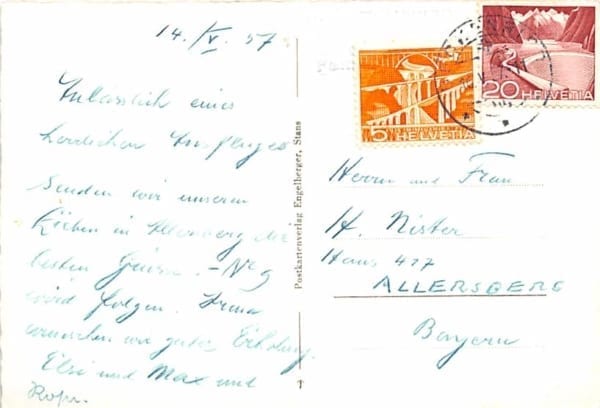 14./V. 57
Anlässlich eines
herrlichen Ausfluges
senden wir unseren
Lieben in Allersberg die
besten Grüsse. - No 9
wird folgen. Irma
wünschen wir gute Erholung.
Elsi und Max und
Postkartenverlag Engelberger, Stans
5 HELVETIA
20 HELVETIA
Herrn und Frau
H. Nister
Haus 427
ALLERSBERG
Bayern